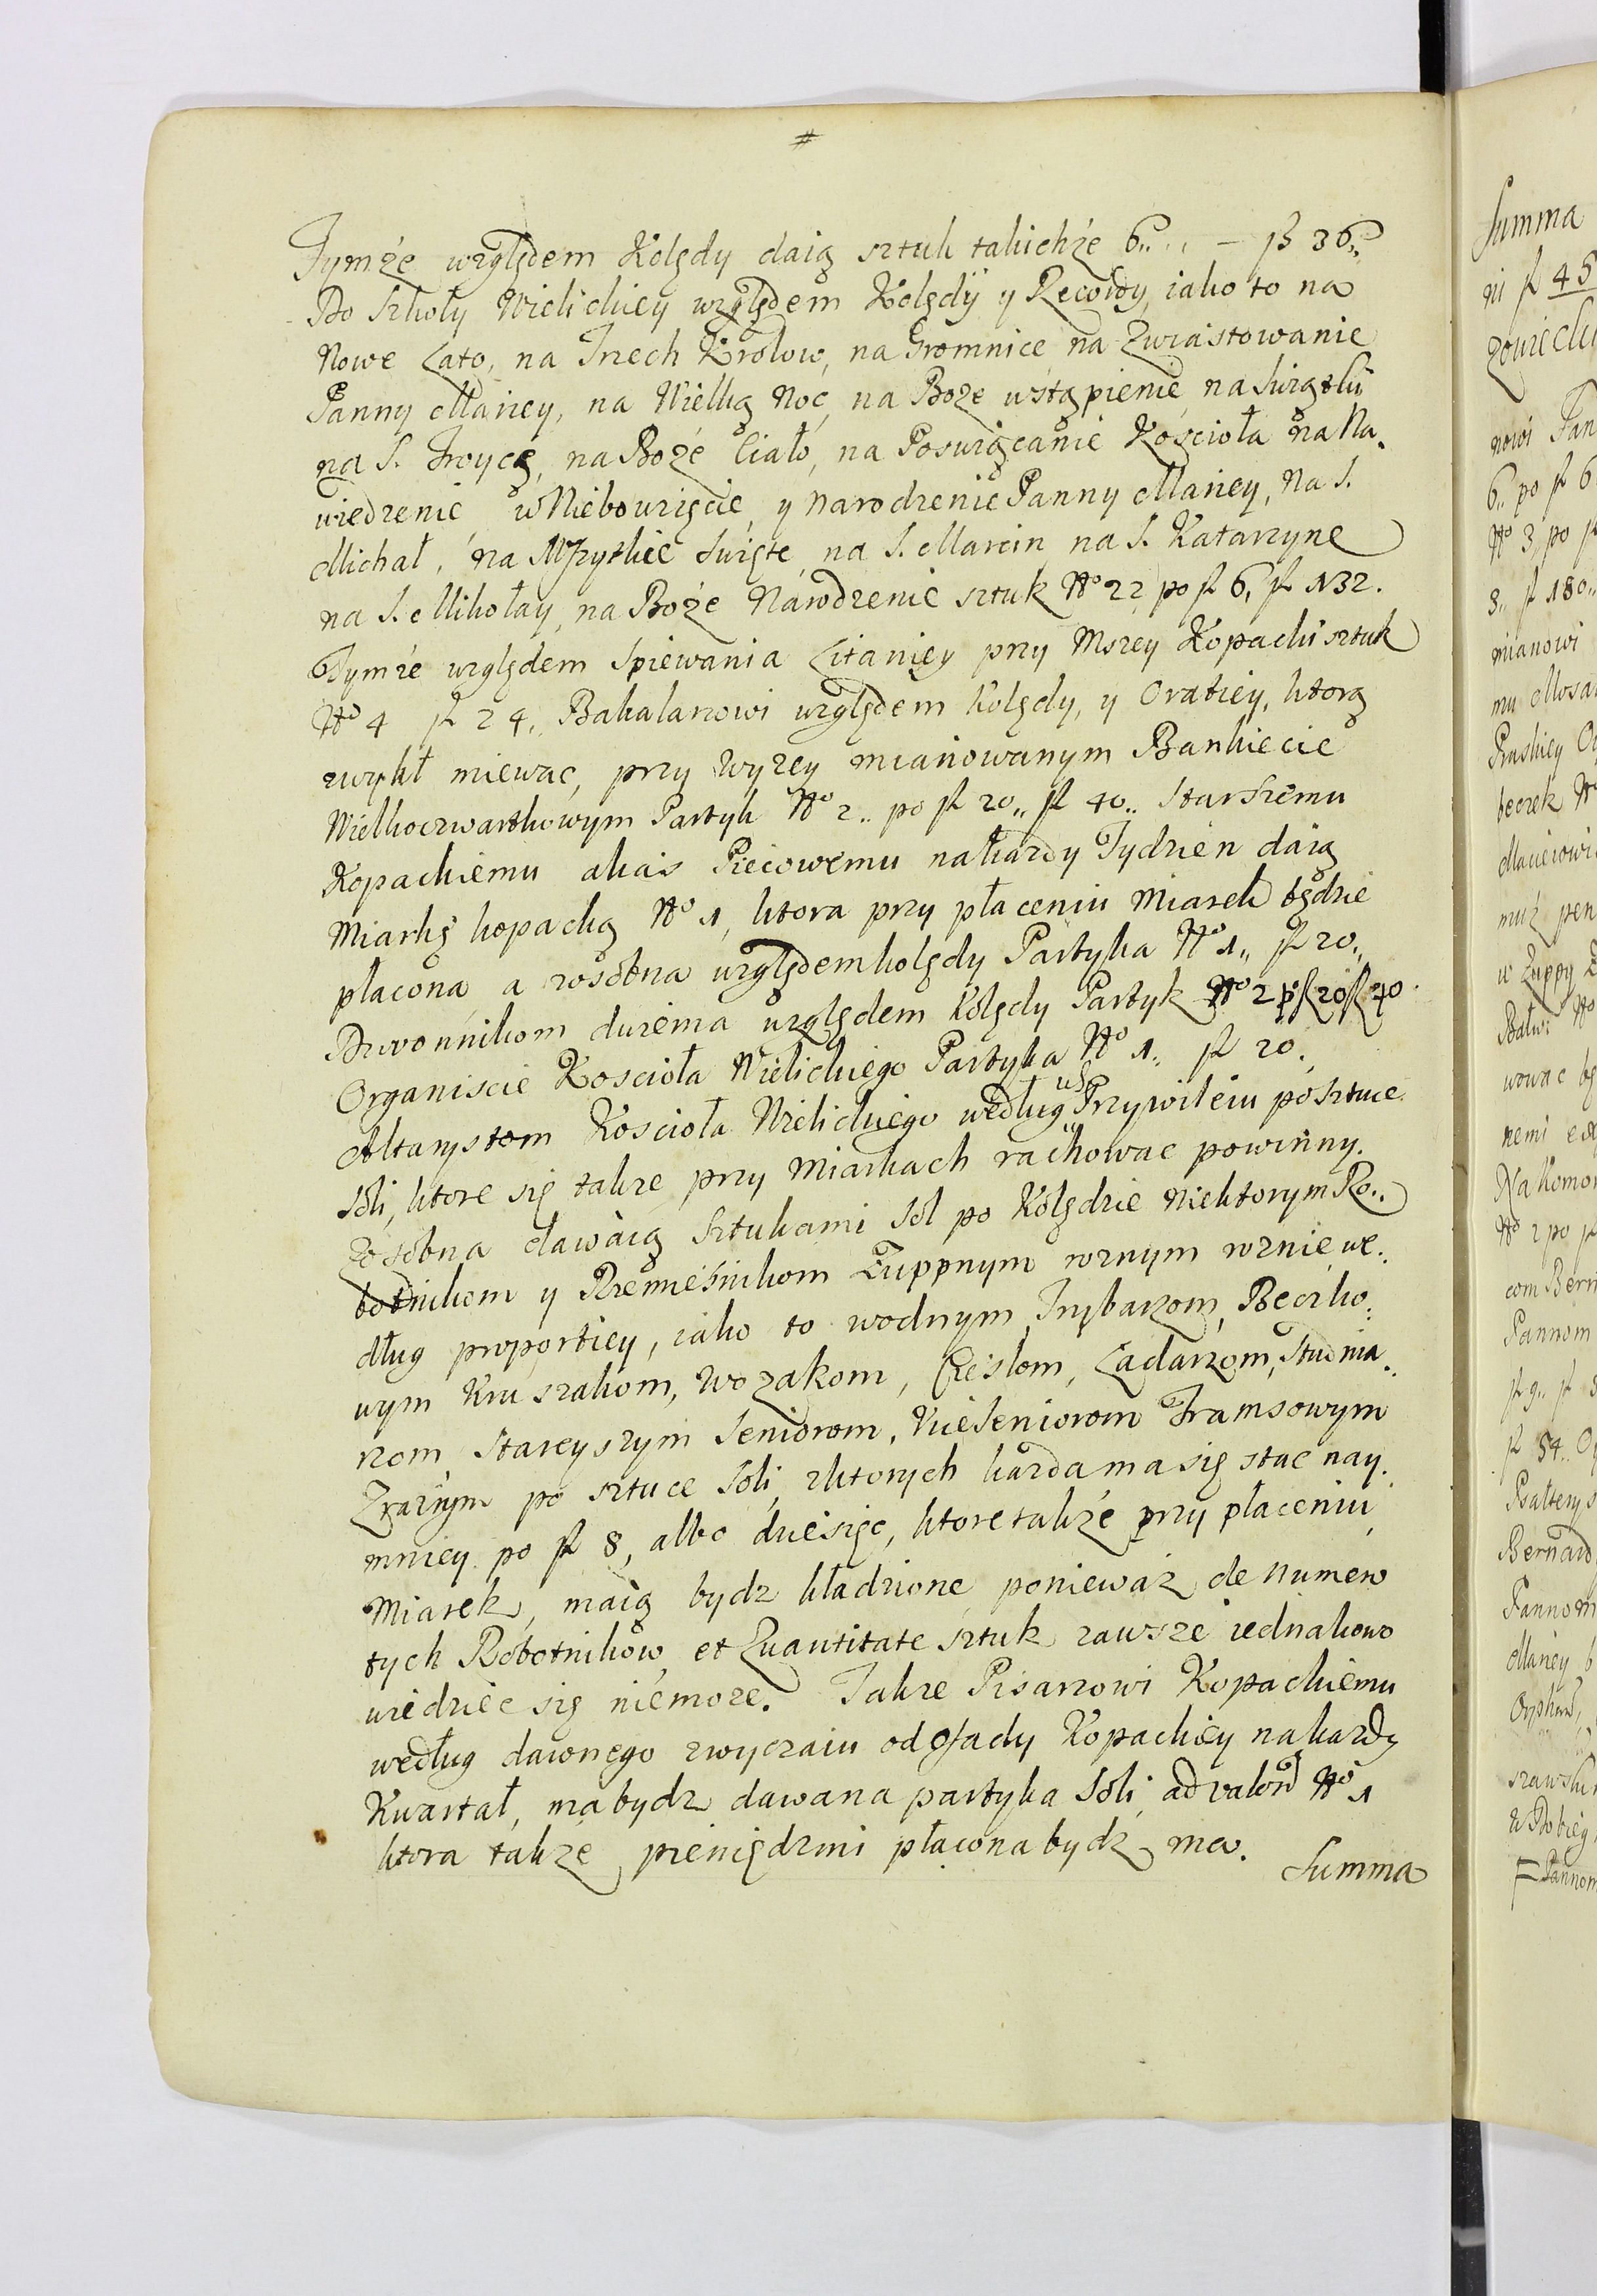 #
Tymże względem Kolędy daią sztuk takichże 6,, ,, — fl 36,,
Do Szkoły Wielickiey względem Kolędÿ y Recordy, iako to na
Nowe Lato, na Trzech Krolow, na Gromnice na Zwiastowanie
Panny Mariey, na Wielką Noc, na Boże wstąpienie, na Swiątki
na S. Troycę, na Boże Ciało, na Poswiącanie Koscioła na Na-
wiedzenie w Niebowzięcie, y Narodzenie Panny Mariey, na S.
Michał, na Wszytkie Swięte, na S. Marcin na S. Katarzyne
na S. Mikołay, na Boże Narodzenie sztuk No 22 po fl 6, fl 132.
Tymże względem Spiewania Litaniey przy Mszey Kopacki sztuk
No 4 fl 24,, Bakalarzowi względem Kolędy, y Oratiey, ktorą
zwykł miewac, przy wyzey mianowanym Bankiecie
Wielkoczwartkowym Partyk No 2,, po fl 20,, fl 40,, Starszemu
Kopackiemu alias Piecowemu nakazdy Tydzien daią
Miarkę kopacką No 1, ktora przy płaceniu Miarek będzie
płacona a zosobna względem kolędy Partyka No 1,, fl 20,,
Dzwonnikom dwiema względem Kolędy Partyk No 2 p fl 20 fl 40.
Organiscie Koscioła Wielickiego Partyka No 1,, fl 20.
Altarystom Koscioła Wielickiego według ich Przywileiu po sztuce
soli, ktore się takze przy Miarkach rachowac powinny.
Zosobna dawaią Sztukami Sol po Kolędzie niektorym Ro,,
botnikom y Rzemieśnikom Zuppnym roznym roznie we:
dług proportiey, iako to wodnym, Trybarzom, Beczko:
wym Kruszakom, Wozakom, Cieslom, Ladarzom, Studnia:
rzom Stareyszym Seniorom, Vice Seniorom Tramsowym
Zraznym po sztuce Soli, z ktorych kazda ma się stac nay:
mniey po fl 8, albo dziesięc, ktore takze przy płaceniu
Miarek, maią bydz kładzione poniewaz de numero
tych Robotnikow et Quantitate sztuk zawsze iednakowo
wiedziec się niemoze. Takze Pisarzowi Kopackiemu
według dawnego zwyczaiu od Osady Kopackiey nakazdy
Kwartał, ma bydz dawana partyka Soli ad valorē No 1
ktora takze pieniędzmi płacona bydz ma.
Summa
Summa
ni fl 45
nowi Pan
6,, po fl 6
No 3 po fl
8,, fl 180,,
mianowi
beczek No
w Zuppy
wowac
No 2 po fl
com Bern
Pannom
fl 9,, fl
fl 54,,
Bernard
Pannom
Mariey
Pannom